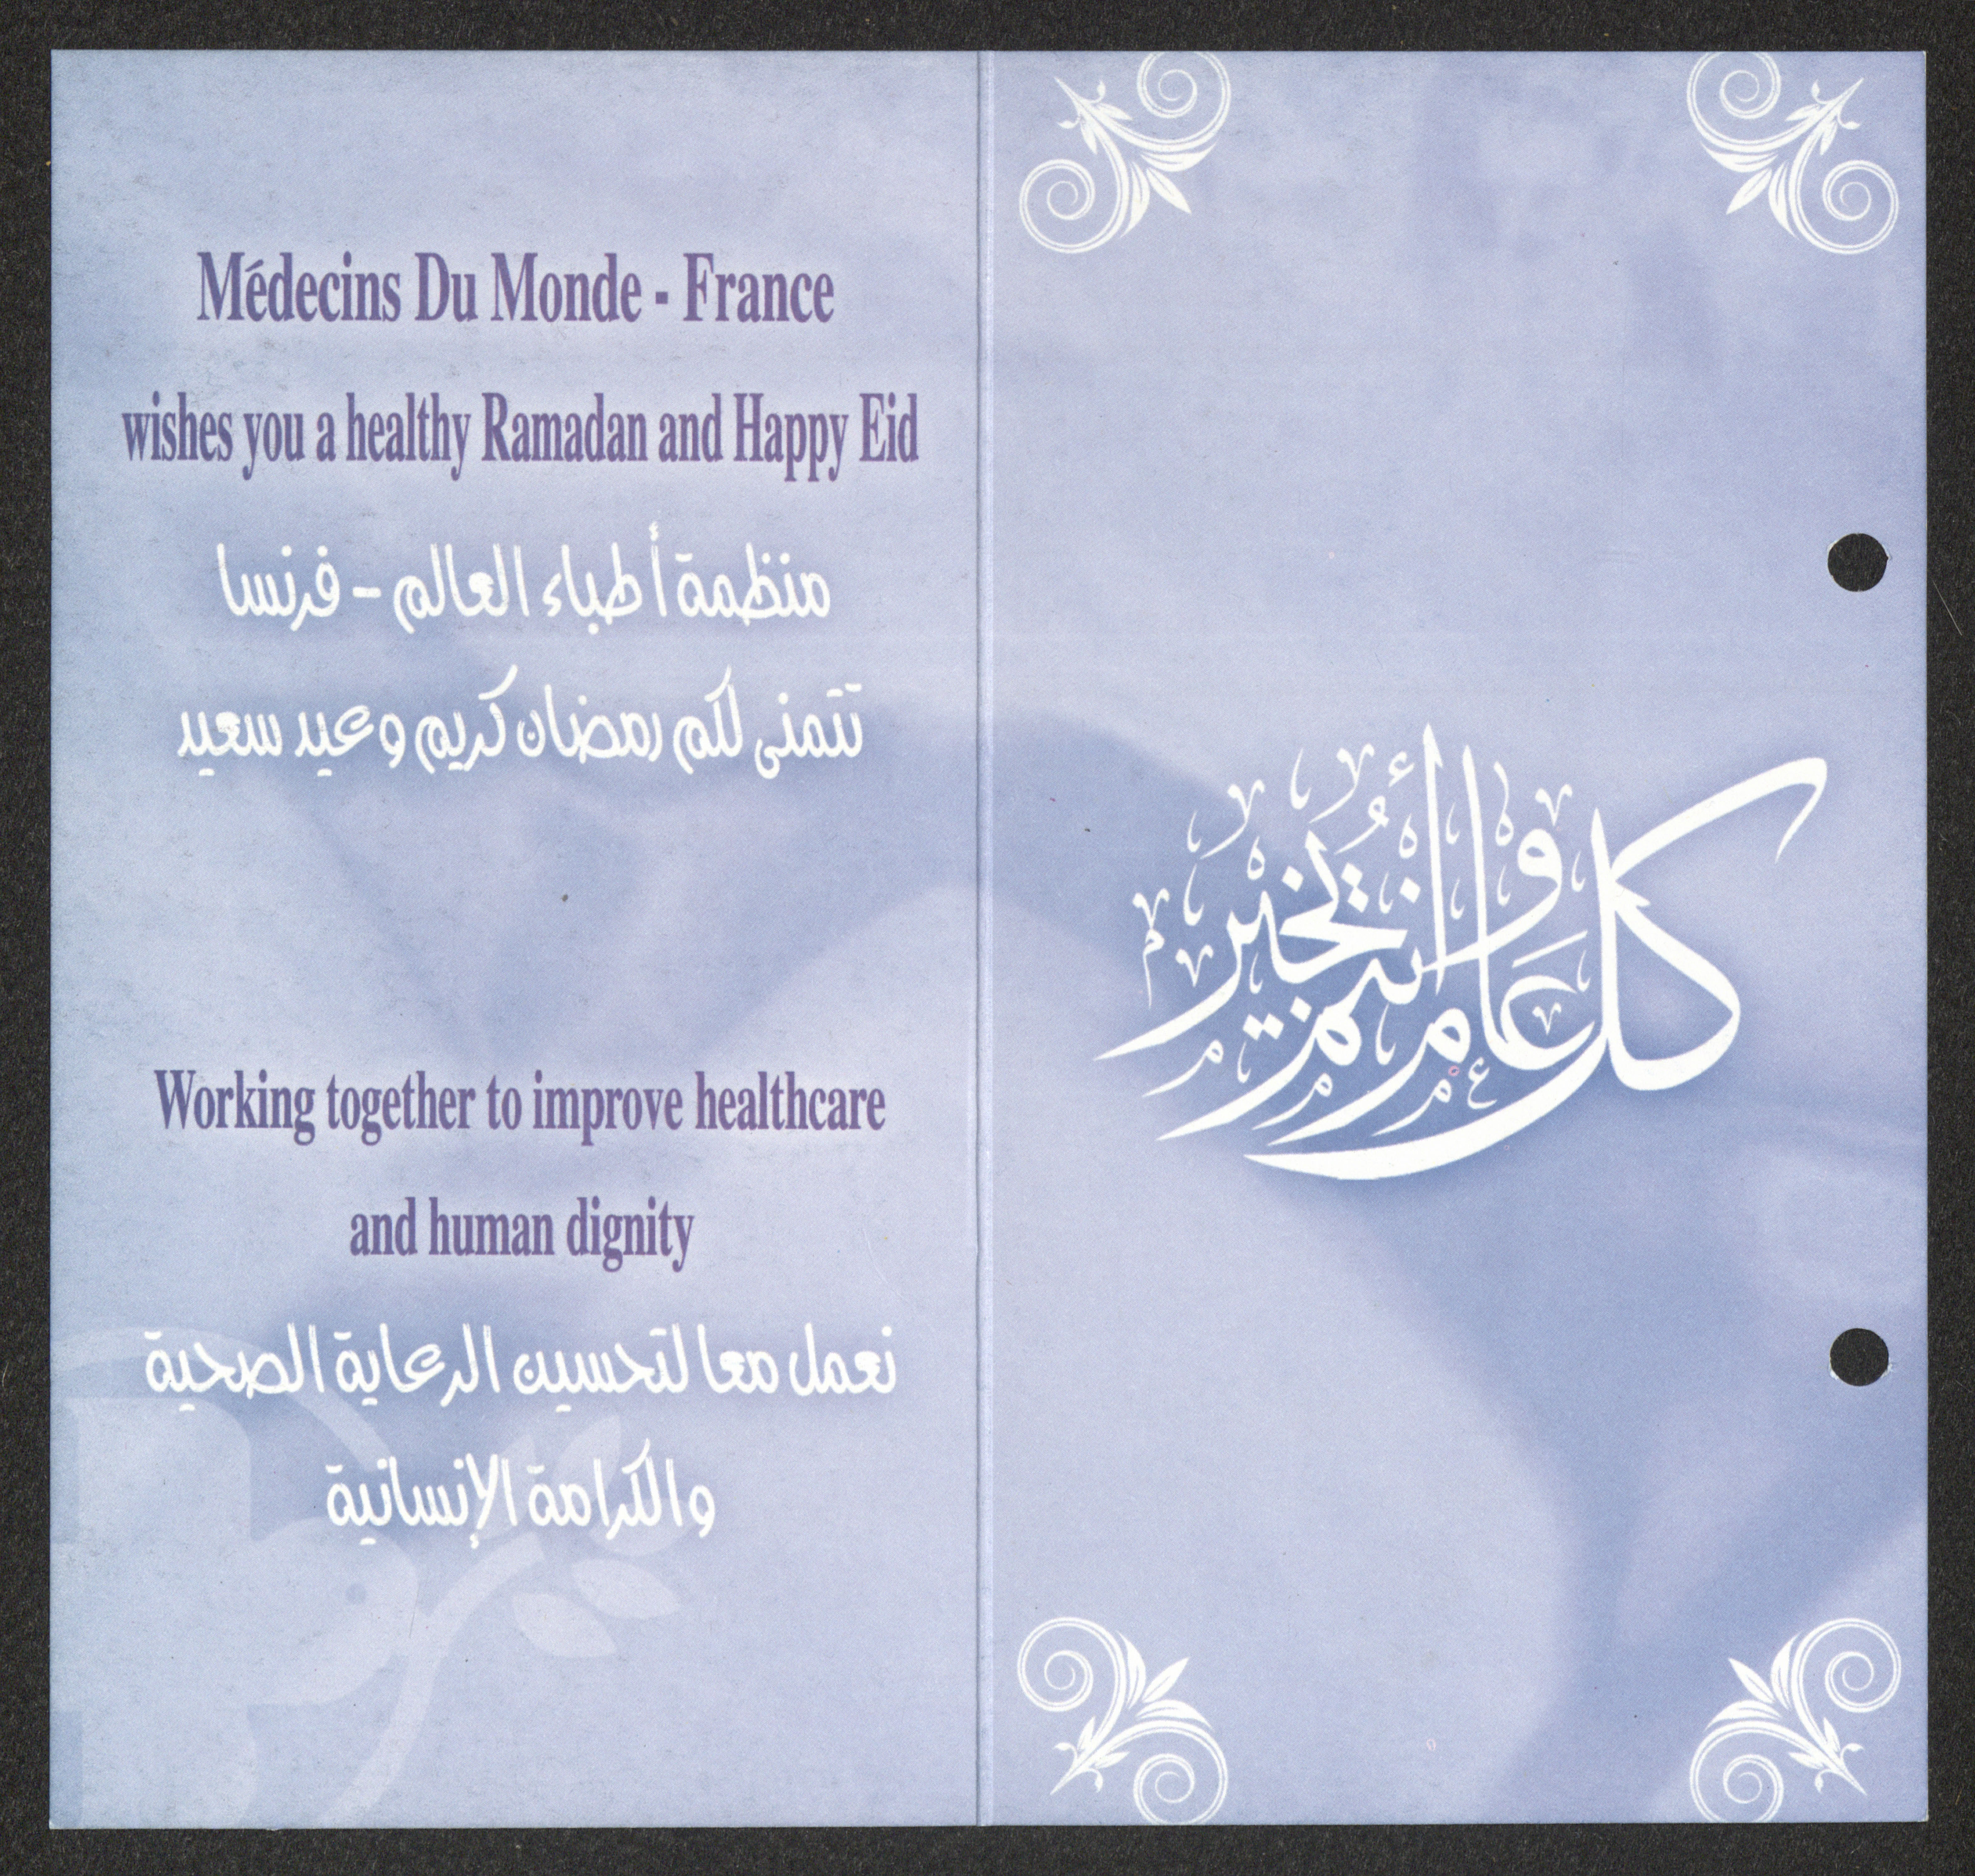 Médecins Du Monde - France
wishes you a healthy Ramadan and Happy Eid
منظمة أطباء العالم - فرنسا
تتمنى لكم رمضان كريم وعيد سعيد
Working together to improve healthcare
and human dignity
نعمل معا لتحسين الرعاية الصحية
والكرامة الإنسانية
كل عام وأنتم بخير